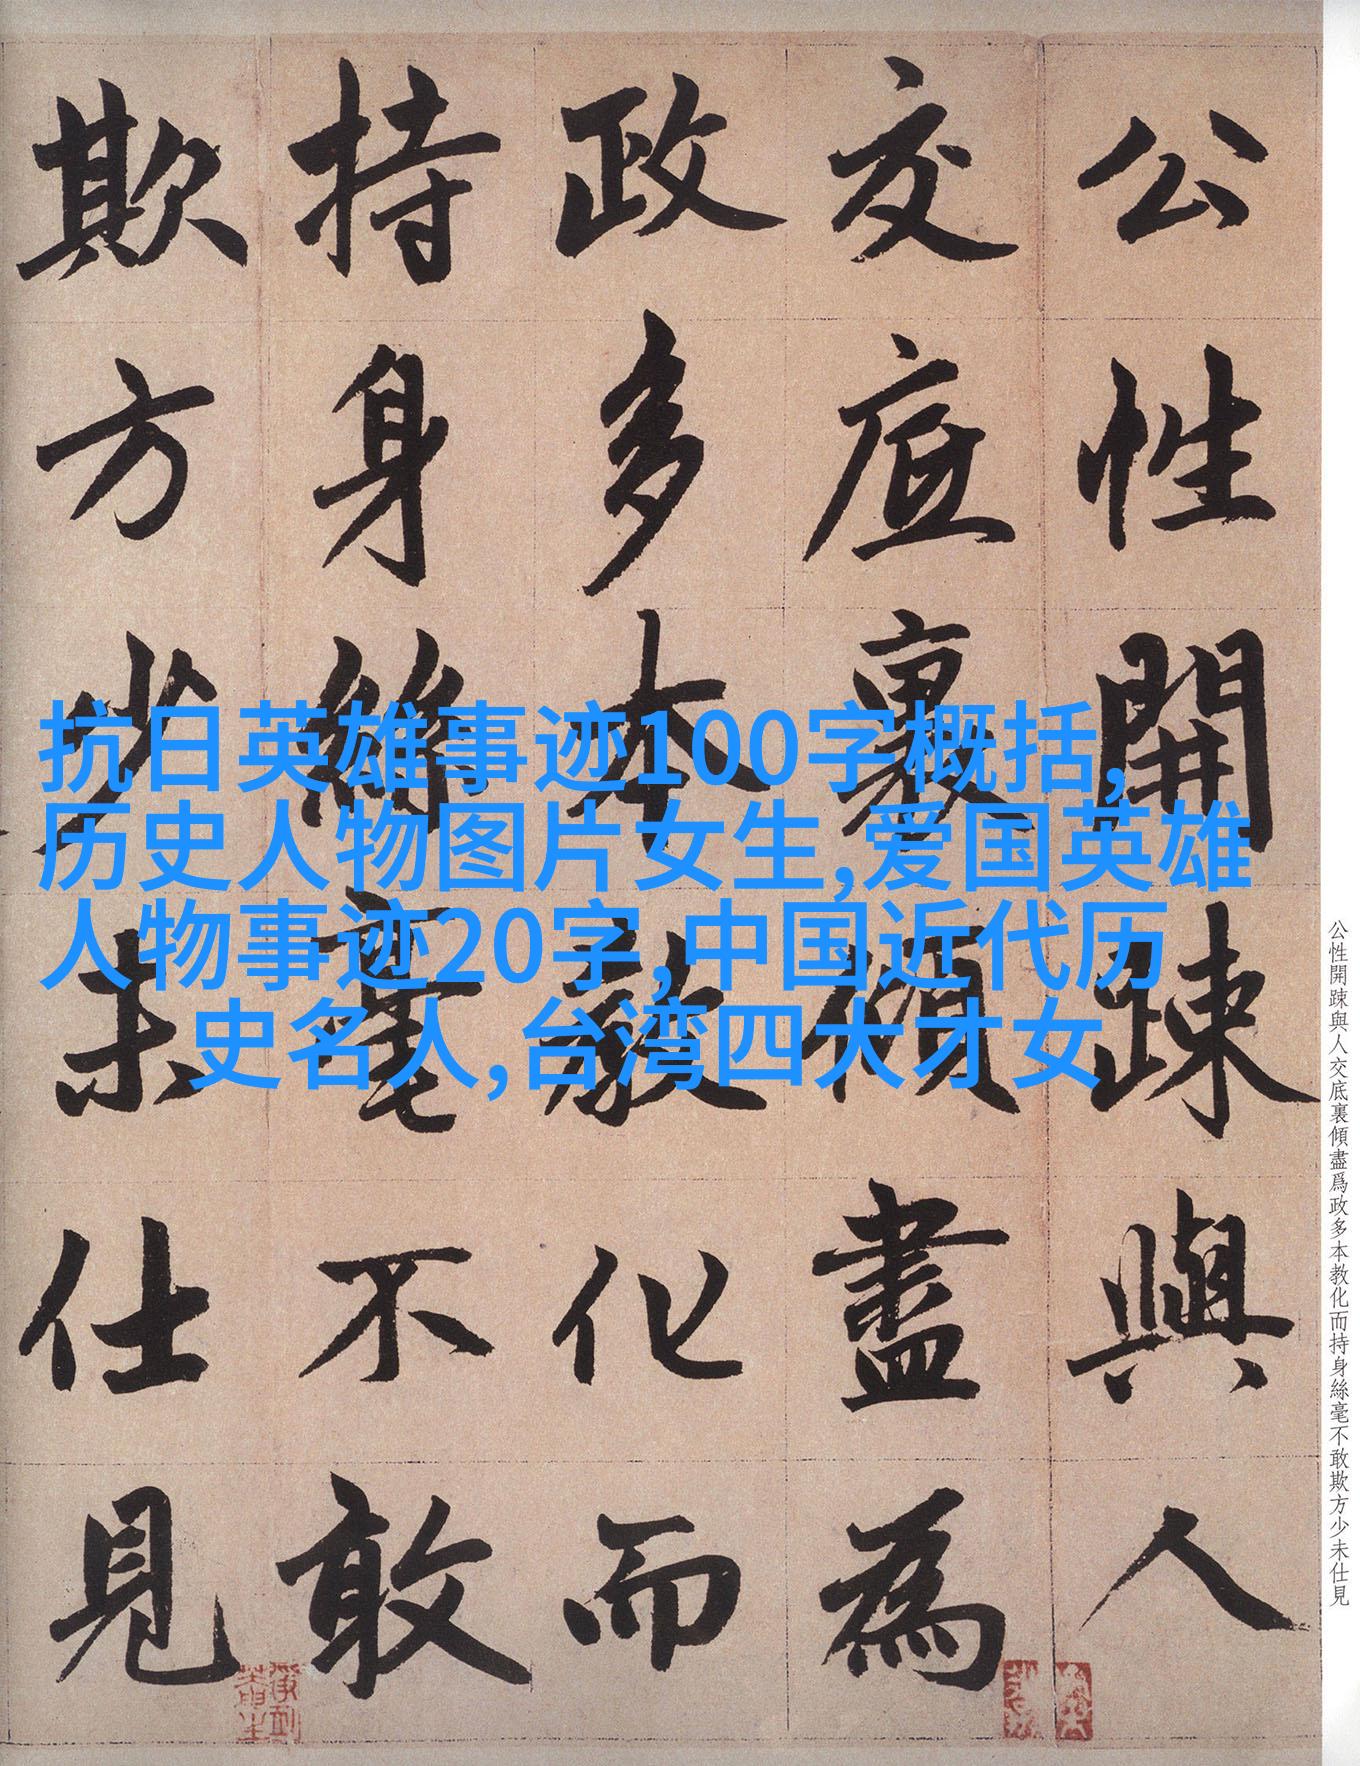 公性開踈與人
交底裏傾盡為
政多本教化而
持身絲毫不敢
欺方少未仕見
抗日英雄事迹100字概括,
历史人物图片女生,爱国英雄
人物事迹20字,中国近代历
史名人,台湾四大才女
公性開踈與人交底裏傾盡爲政多本教化而持身絲毫不敢欺方少未仕見